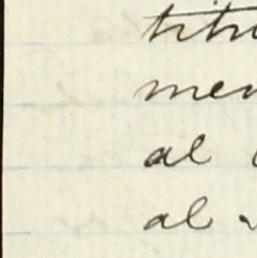 titu
men
al
al